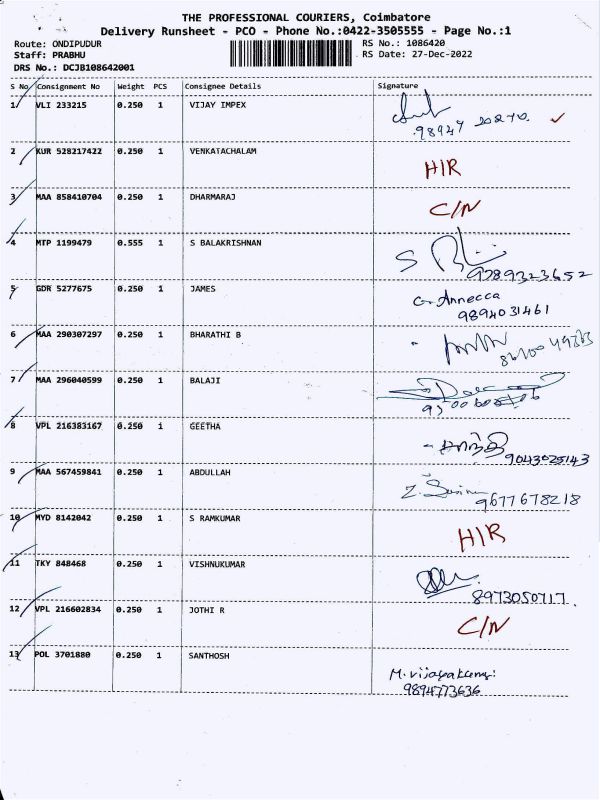 THE PROFESSIONAL COURIERS, Coimbatore
Delivery Runsheet - PCO - Phone No.:0422-3505555 - Page No.:1
Route: ONDIPUDUR RS No.: 1086420
Staff: PRABHU RS Date: 27-Dec-2022
DRS No.: DCJB108642001
S No Consignment No Weight PCS Consignee Details Signature
1 VLI 233215 0.250 1 VIJAY IMPEX
98947
2 KUR 528217422 0.250 1 VENKATACHALAM
H/R
3 MAA 858410704 0.250 1 DHARMARAJ
C/N
4 MTP 1199479 0.555 1 S BALAKRISHNAN
S
9789323652
5 GDR 5277675 0.250 1 JAMES
G. Annecca
9894031461
6 MAA 290307297 0.250 1 BHARATHI B
7 MAA 296040599 0.250 1 BALAJI
8 VPL 216383167 0.250 1 GEETHA
சாந்தி
9043025143
9 MAA 567459841 0.250 1 ABDULLAH
9677678218
10 MYD 8142042 0.250 1 S RAMKUMAR
H/R
11 TKY 848468 0.250 1 VISHNUKUMAR
8973050717.
12 VPL 216602834 0.250 1 JOTHI R
C/N
13 POL 3701880 0.250 1 SANTHOSH
M. Vijayakumar
9894773636